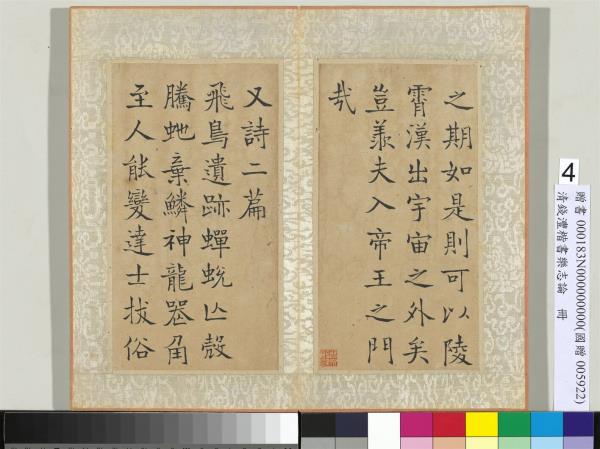 之期如是則可以陵
霄漢出宇宙之外矣
豈羨夫入帝王之門
哉
又詩二篇
飛鳥遺跡蟬蛻亾殼
騰虵棄鱗神龍喪角
至人能變達士拔俗
4
贈書 000183N000000000(國贈 005922)
清錢澧楷書樂志論 冊